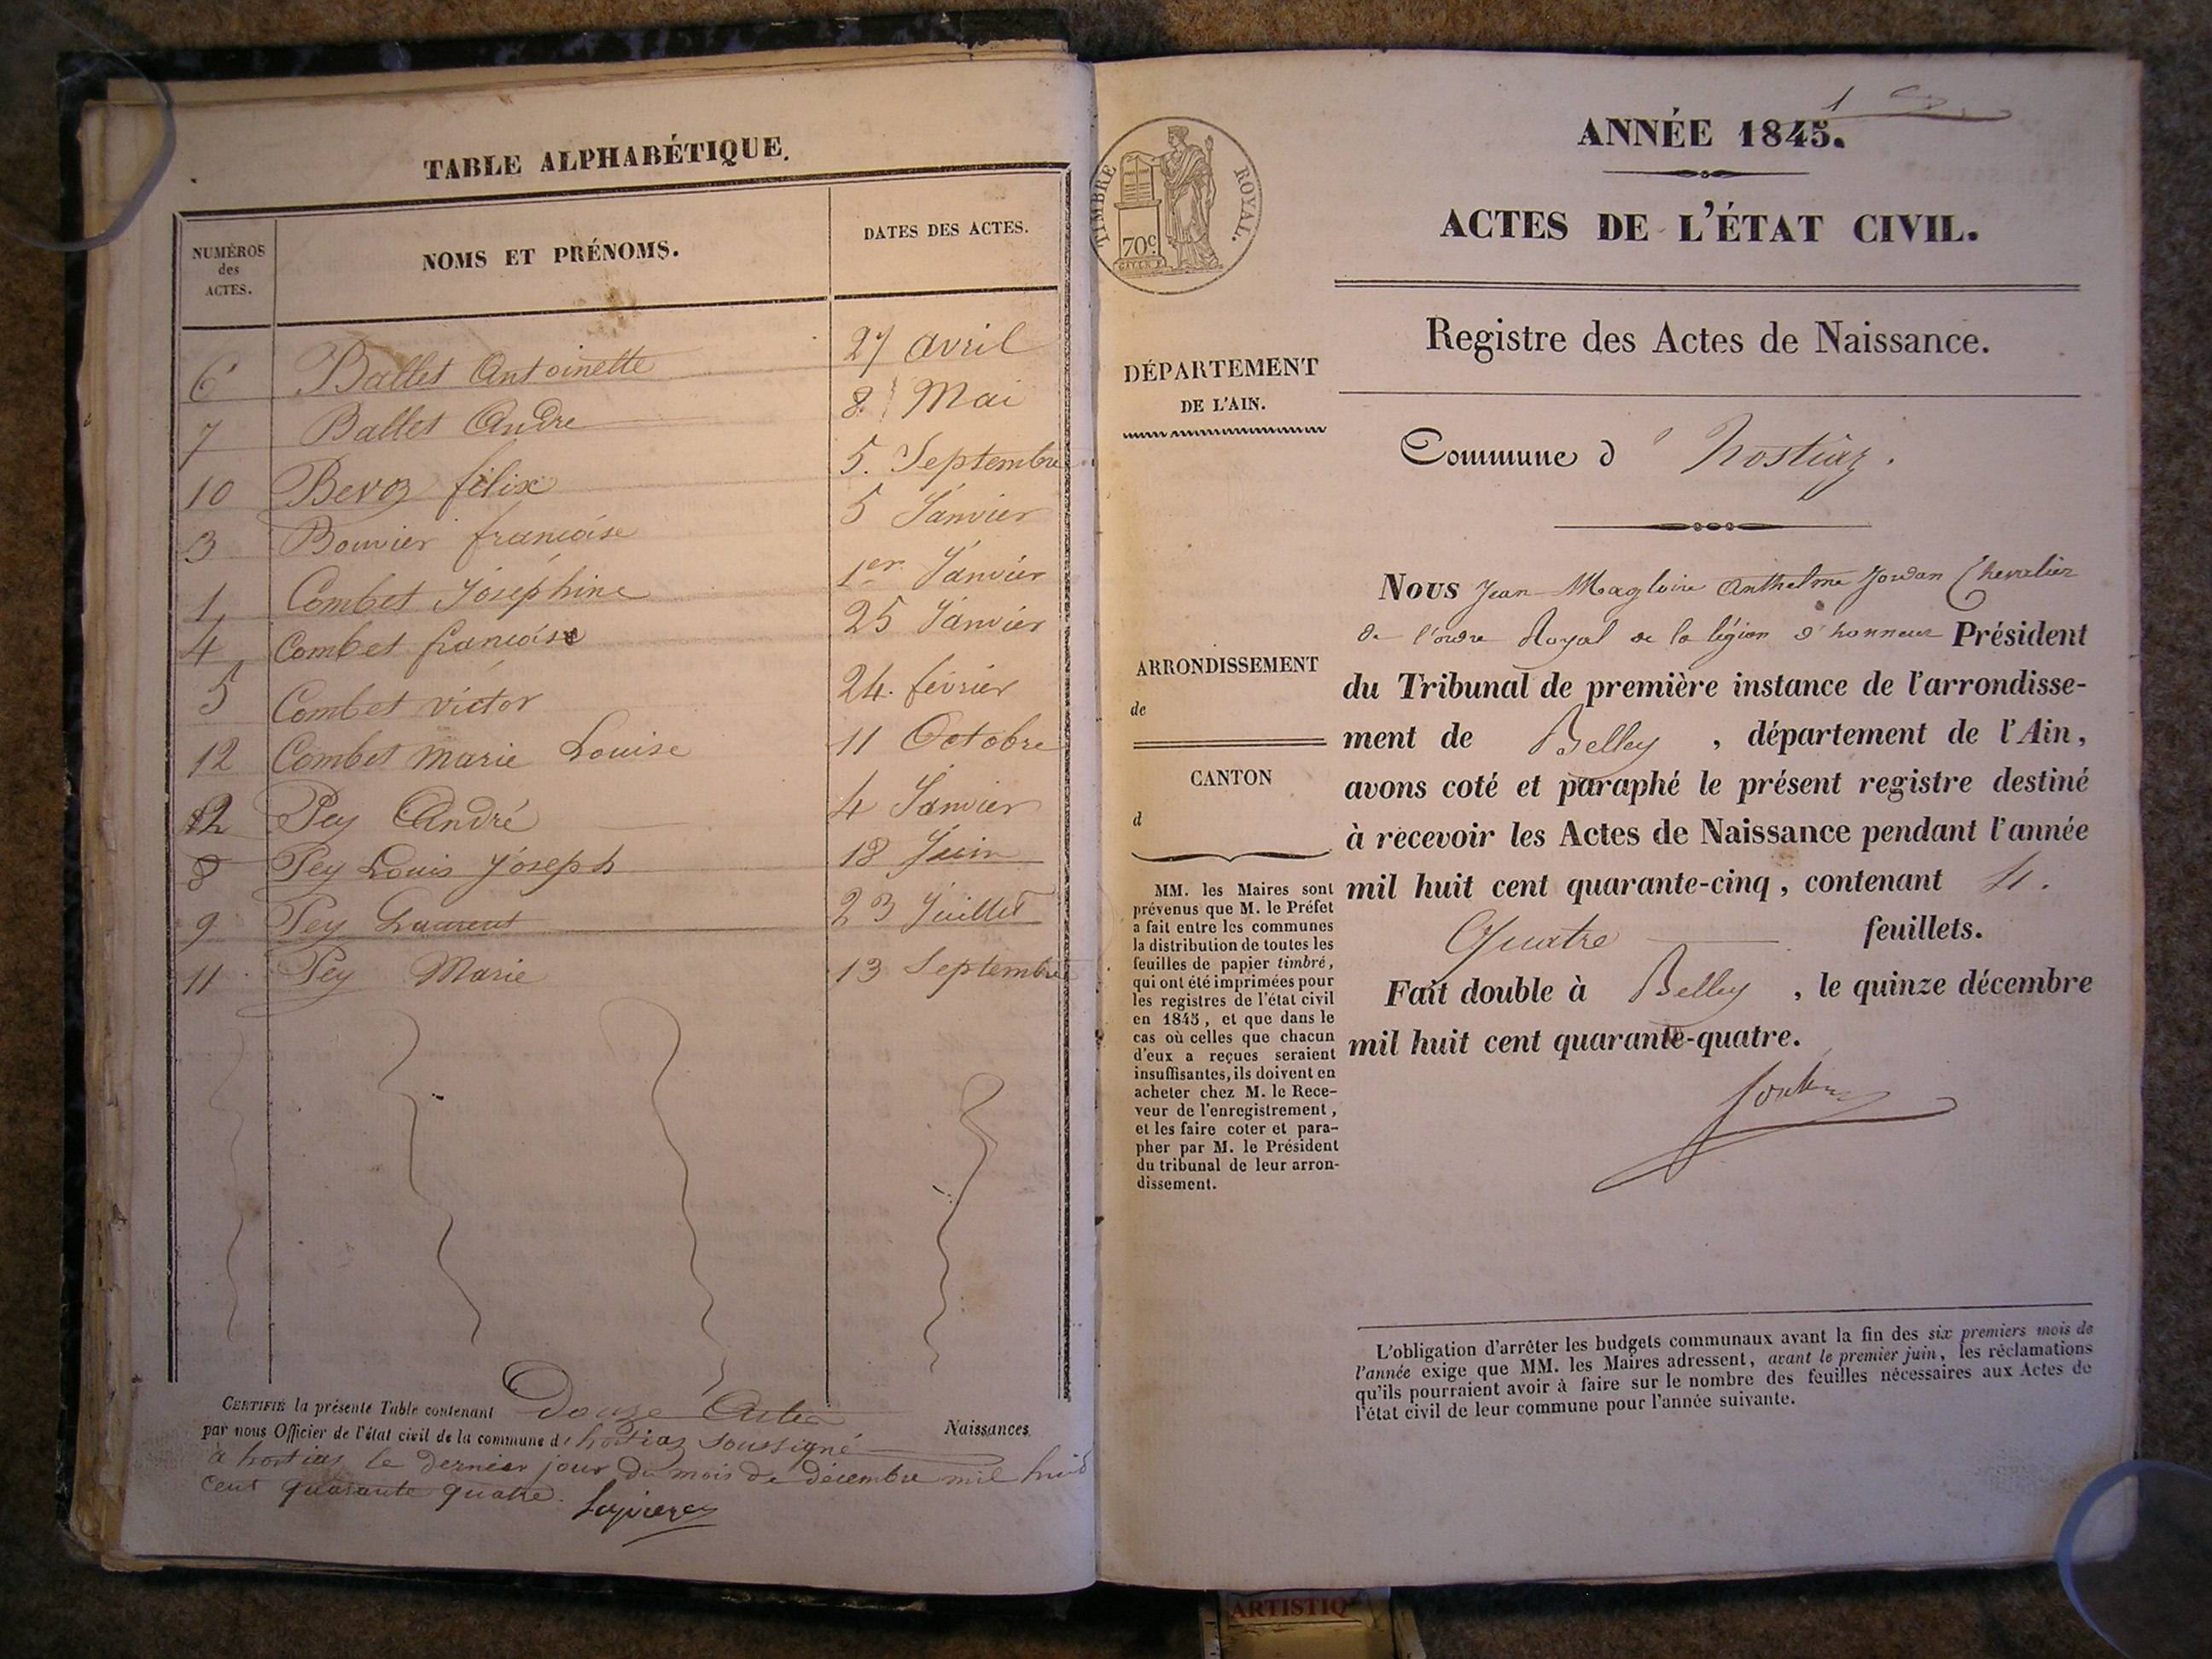 TABLE ALPHABÉTIQUE.
NUMÉROS des ACTES. NOMS ET PRÉNOMS. DATES DES ACTES.
6 Ballet Antoinette 27 avril
7 Ballet Andre 8 Mai
10 Bevoz félix 5. Septembre
3 Bouvier francoise 5 Janvier
1 Combet Joséphine 1er Janvier
4 Combet francoise 25 Janvier
5 Combet victor 24. février
12 Combet Marie Louise 11 Octobre
2 Pey André 4 Janvier
8 Pey Louis Joseph 18 Juin
9 Pey Laurent 23 Juillet
11 Pey Marie 13 Septembre
CERTIFIÉ la présente Table contenant Douze Actes Naissances
par nous Officier de l'état civil de la commune d'hostiaz soussigné
à hostiaz le dernier jour du mois de décembre mil huit
cent quarante quatre.
1
ANNÉE 1845.
TIMBRE ROYAL.
70c
ACTES DE L'ÉTAT CIVIL.
Registre des Actes de Naissance.
DÉPARTEMENT
DE L'AIN.
Commune d'hostiaz.
ARRONDISSEMENT
de
CANTON
d
MM. les Maires sont
prévenus que M. le Préfet
a fait entre les communes
la distribution de toutes les
feuilles de papier timbré,
qui ont été imprimées pour
les registres de l'état civil
en 1845, et que dans le
cas où celles que chacun
d'eux a reçues seraient
insuffisantes, ils doivent en
acheter chez M. le Rece-
veur de l'enregistrement,
et les faire coter et para-
pher par M. le Président
du tribunal de leur arron-
dissement.
Nous Jean Magloire Anthelme Jordan Chevalier
de l'ordre Royal de la légion d'honneur Président
du Tribunal de première instance de l'arrondisse-
ment de Belley, département de l'Ain,
avons coté et paraphé le présent registre destiné
à recevoir les Actes de Naissance pendant l'année
mil huit cent quarante-cinq, contenant 4.
Quatre feuillets.
Fait double à Belley, le quinze décembre
mil huit cent quarante-quatre.
L'obligation d'arrêter les budgets communaux avant la fin des six premiers mois de
l'année exige que MM. les Maires adressent, avant le premier juin, les réclamations
qu'ils pourraient avoir à faire sur le nombre des feuilles nécessaires aux Actes de
l'état civil de leur commune pour l'année suivante.
ARTISTIQ